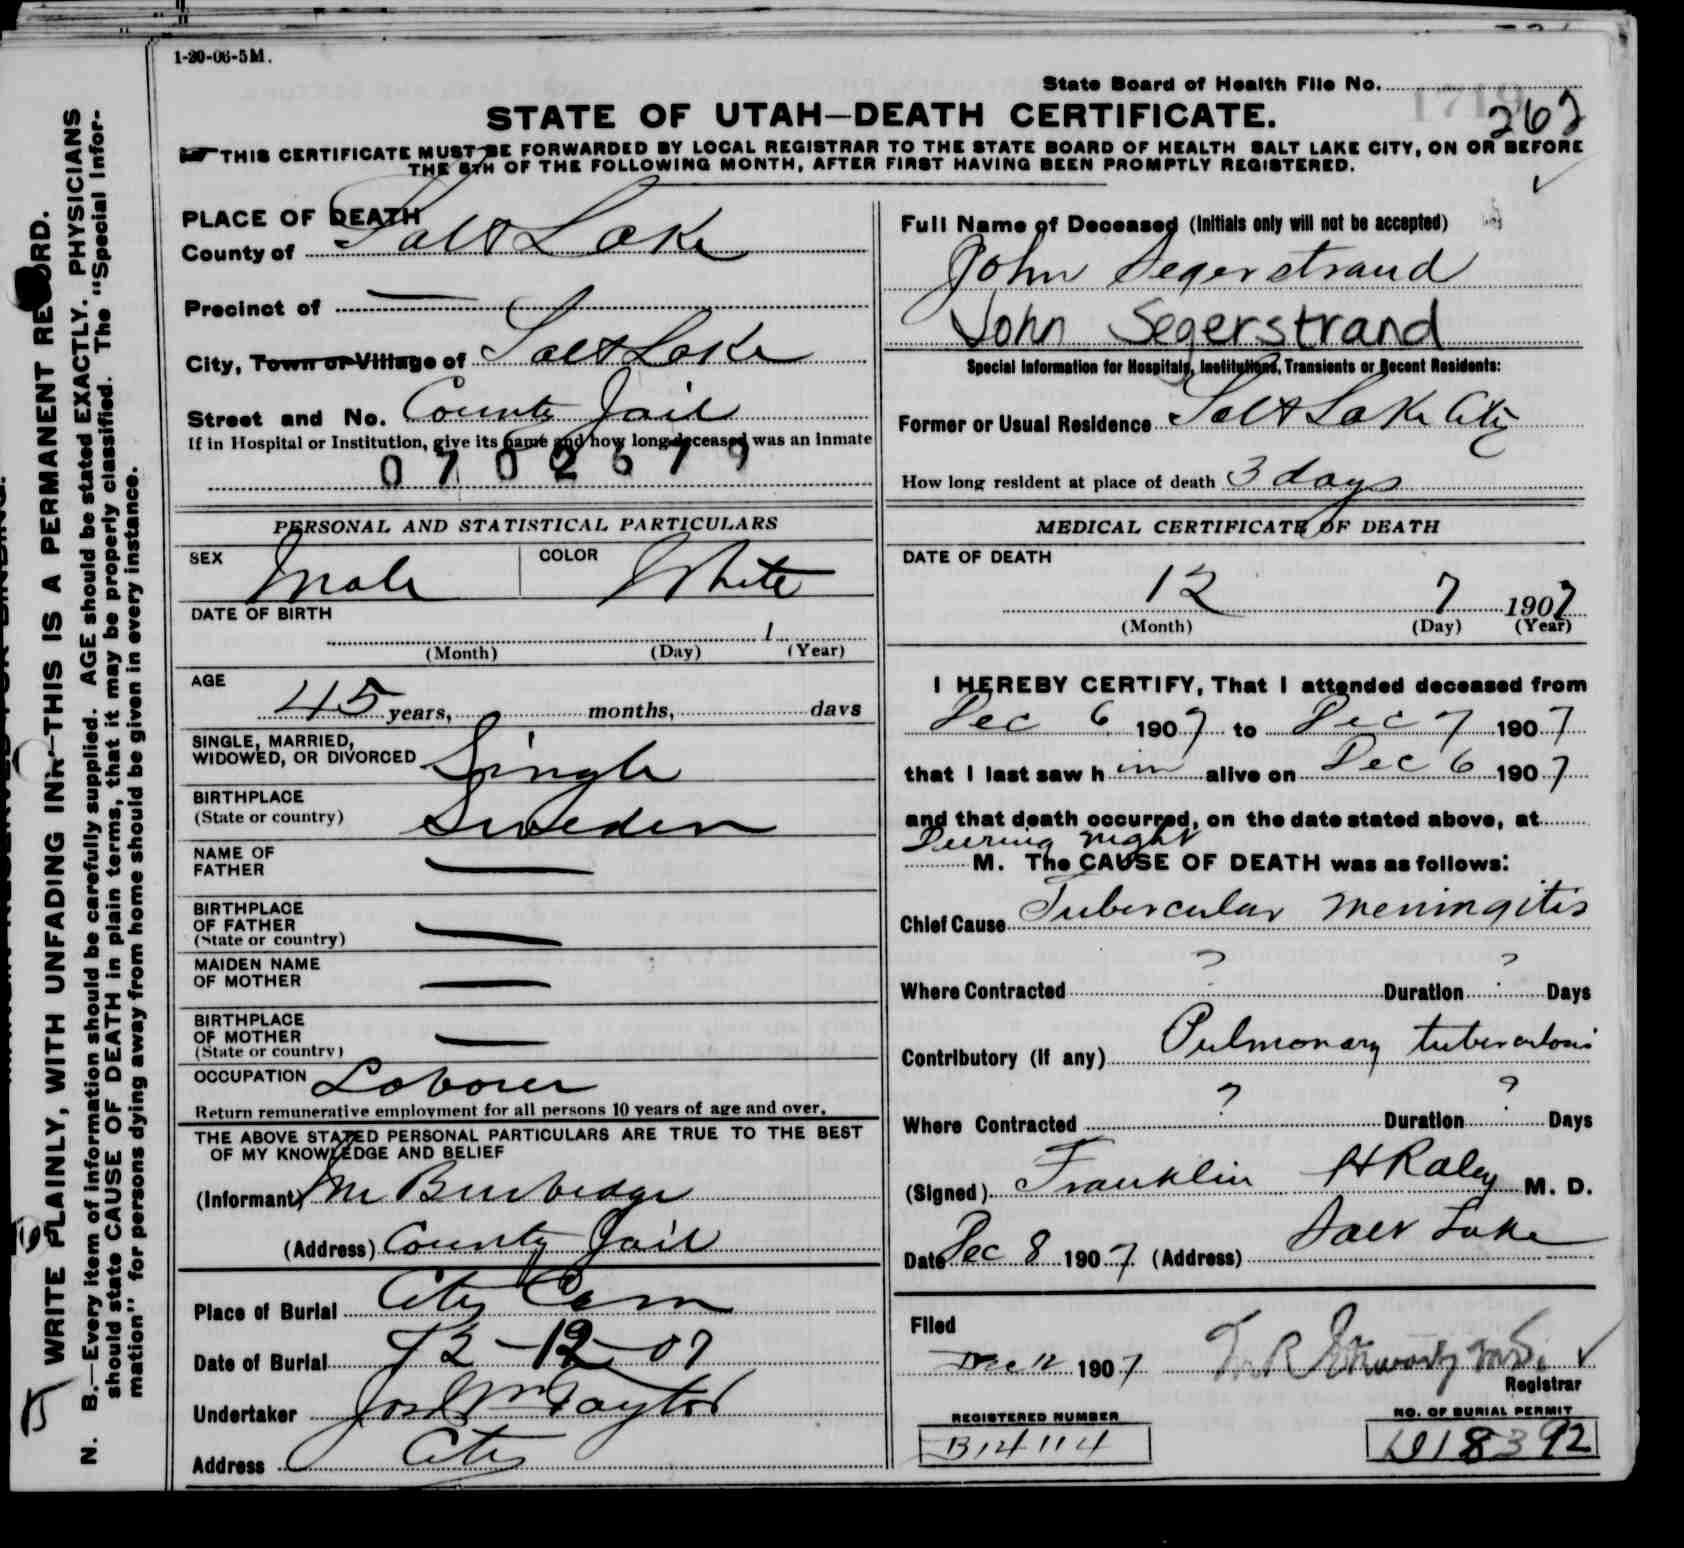 1-20-06-5M.
State Board of Health File No.
262
STATE OF UTAH—DEATH CERTIFICATE.
THIS CERTIFICATE MUST BE FORWARDED BY LOCAL REGISTRAR TO THE STATE BOARD OF HEALTH SALT LAKE CITY, ON OR BEFORE
THE 5TH OF THE FOLLOWING MONTH, AFTER FIRST HAVING BEEN PROMPTLY REGISTERED.
PLACE OF DEATH
County of Salt Lake
Precinct of —
City, Town or Village of Salt Lake
Street and No. County Jail
If in Hospital or Institution, give its name and how long deceased was an inmate
0702679
Full Name of Deceased (Initials only will not be accepted)
John Segerstrand
John Segerstrand
Special Information for Hospitals, Institutions, Transients or Recent Residents:
Former or Usual Residence Salt Lake City
How long resident at place of death 3 days
PERSONAL AND STATISTICAL PARTICULARS
SEX Male COLOR White
DATE OF BIRTH
1
(Month) (Day) (Year)
AGE
45 years, months, days
SINGLE, MARRIED,
WIDOWED, OR DIVORCED Single
BIRTHPLACE
(State or country) Sweden
NAME OF
FATHER —
BIRTHPLACE
OF FATHER
(State or country) —
MAIDEN NAME
OF MOTHER —
BIRTHPLACE
OF MOTHER —
(State or country)
OCCUPATION Laborer
Return remunerative employment for all persons 10 years of age and over.
THE ABOVE STATED PERSONAL PARTICULARS ARE TRUE TO THE BEST
OF MY KNOWLEDGE AND BELIEF
(Informant) Burbedge
(Address) County Jail
Place of Burial City Cem
Date of Burial 12-12-07
Undertaker Jos Wm Taylor
Address City
MEDICAL CERTIFICATE OF DEATH
DATE OF DEATH
12 7 1907
(Month) (Day) (Year)
I HEREBY CERTIFY, That I attended deceased from
Dec 6 1907 to Dec 7 1907
that I last saw him alive on Dec 6 1907
and that death occurred, on the date stated above, at
During night
M. The CAUSE OF DEATH was as follows:
Chief Cause Tubercular meningitis
Where Contracted ? Duration ? Days
Contributory (if any) Pulmonary tuberculosis
Where Contracted ? Duration ? Days
(Signed) Franklin H Raley M. D.
Date Dec 8 1907 (Address) Salt Lake
Filed
Dec 12 1907
Registrar
REGISTERED NUMBER
B14114
NO. OF BURIAL PERMIT
D18392
WRITE PLAINLY, WITH UNFADING INK—THIS IS A PERMANENT RECORD.
N. B.—Every item of information should be carefully supplied. AGE should be stated EXACTLY. PHYSICIANS
should state CAUSE OF DEATH in plain terms, that it may be properly classified. The "Special Infor-
mation" for persons dying away from home should be given in every instance.